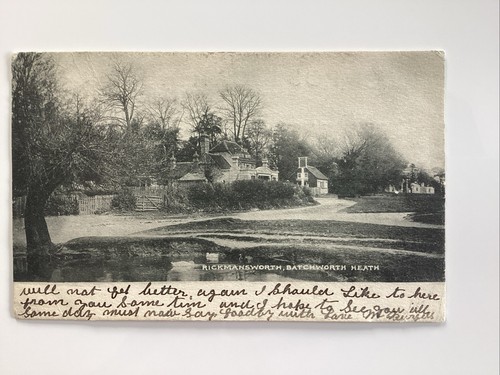 RICKMANSWORTH, BATCHWORTH HEATH
will not get better again I Should Like to here
from you Some tim and I hope to See you all
Some day must now Say Goodby with Love